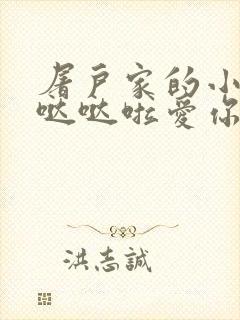 屠戶家的小
哒哒啦愛你
洪志誠